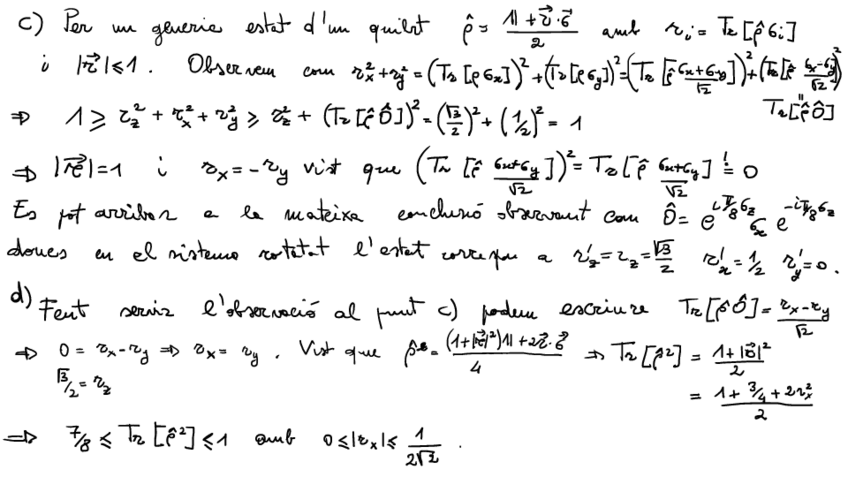 c) Per un generic estat d'un qubit ρ̂ = (𝟙 + r⃗·σ⃗)/2 amb r_i = Tr[ρ̂σ_i]
i |r⃗| ≤ 1. Observem com r_x² + r_y² = (Tr[ρσ_x])² + (Tr[ρσ_y])² = (Tr[ρ̂ (σ_x+σ_y)/√2])² + (Tr[ρ̂ (σ_x-σ_y)/√2])²
Tr[ρ̂Ô]
⇒ 1 ≥ r_z² + r_x² + r_y² ≥ r_z² + (Tr[ρ̂Ô])² = (√3/2)² + (1/2)² = 1
⇒ |r⃗| = 1 i r_x = -r_y vist que (Tr[ρ̂ (σ_x+σ_y)/√2])² = Tr[ρ̂ (σ_x+σ_y)/√2] =! 0
Es pot arribar a la mateixa conclusió observant com Ô = e^{iπ/8 σ_z} σ_x e^{-iπ/8 σ_z}
doncs en el sistema rotatat l'estat correspon a r'_z = r_z = √3/2 r'_x = 1/2 r'_y = 0.
d) Fent servir l'observació al punt c) podem escriure Tr[ρ̂Ô] = (r_x - r_y)/√2
⇒ 0 = r_x - r_y ⇒ r_x = r_y. Vist que ρ̂² = ((1+|r⃗|²)𝟙 + 2r⃗·σ⃗)/4 ⇒ Tr[ρ̂²] = (1+|r⃗|²)/2
√3/2 = r_z
= (1 + 3/4 + 2r_x²)/2
⇒ 7/8 ≤ Tr[ρ̂²] ≤ 1 amb 0 ≤ |r_x| ≤ 1/(2√2).